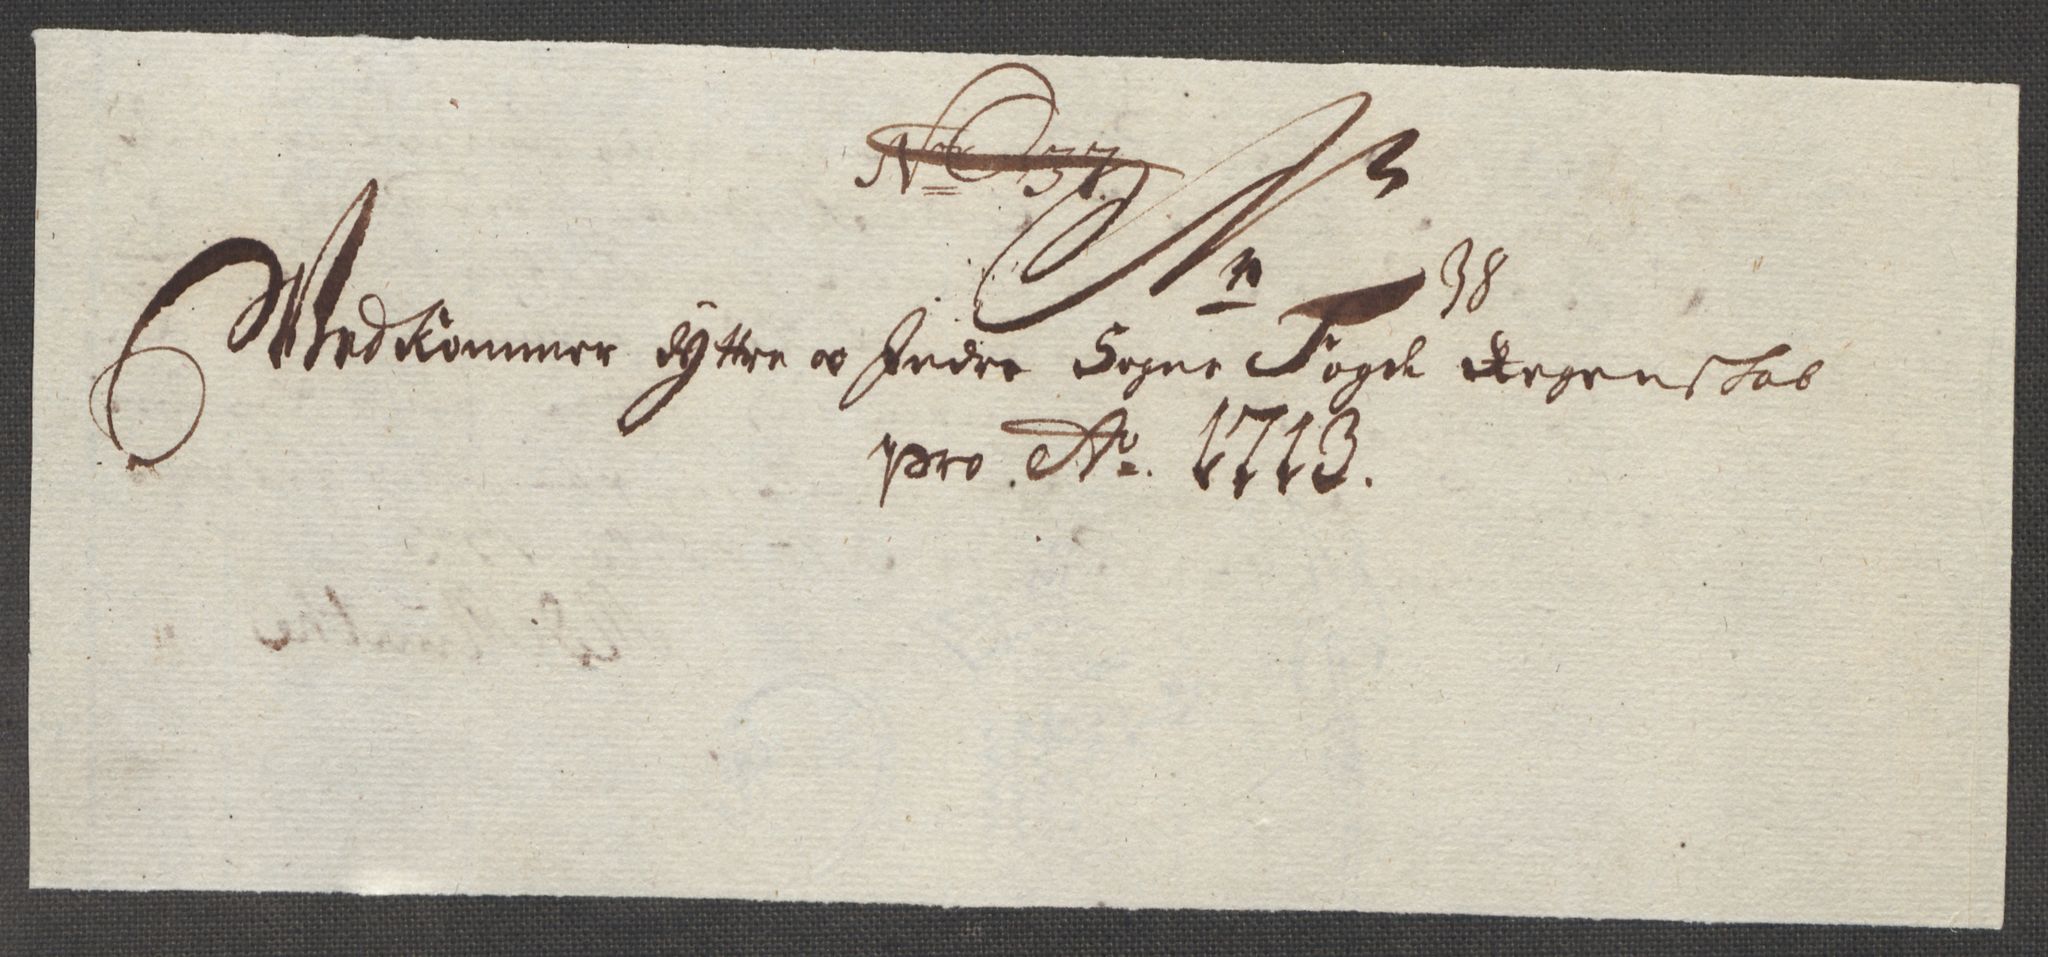 No 37.
No 38
Vedkommer Yttre og Indre Sogns Fogde Regenskab
pro Ao. 1713.